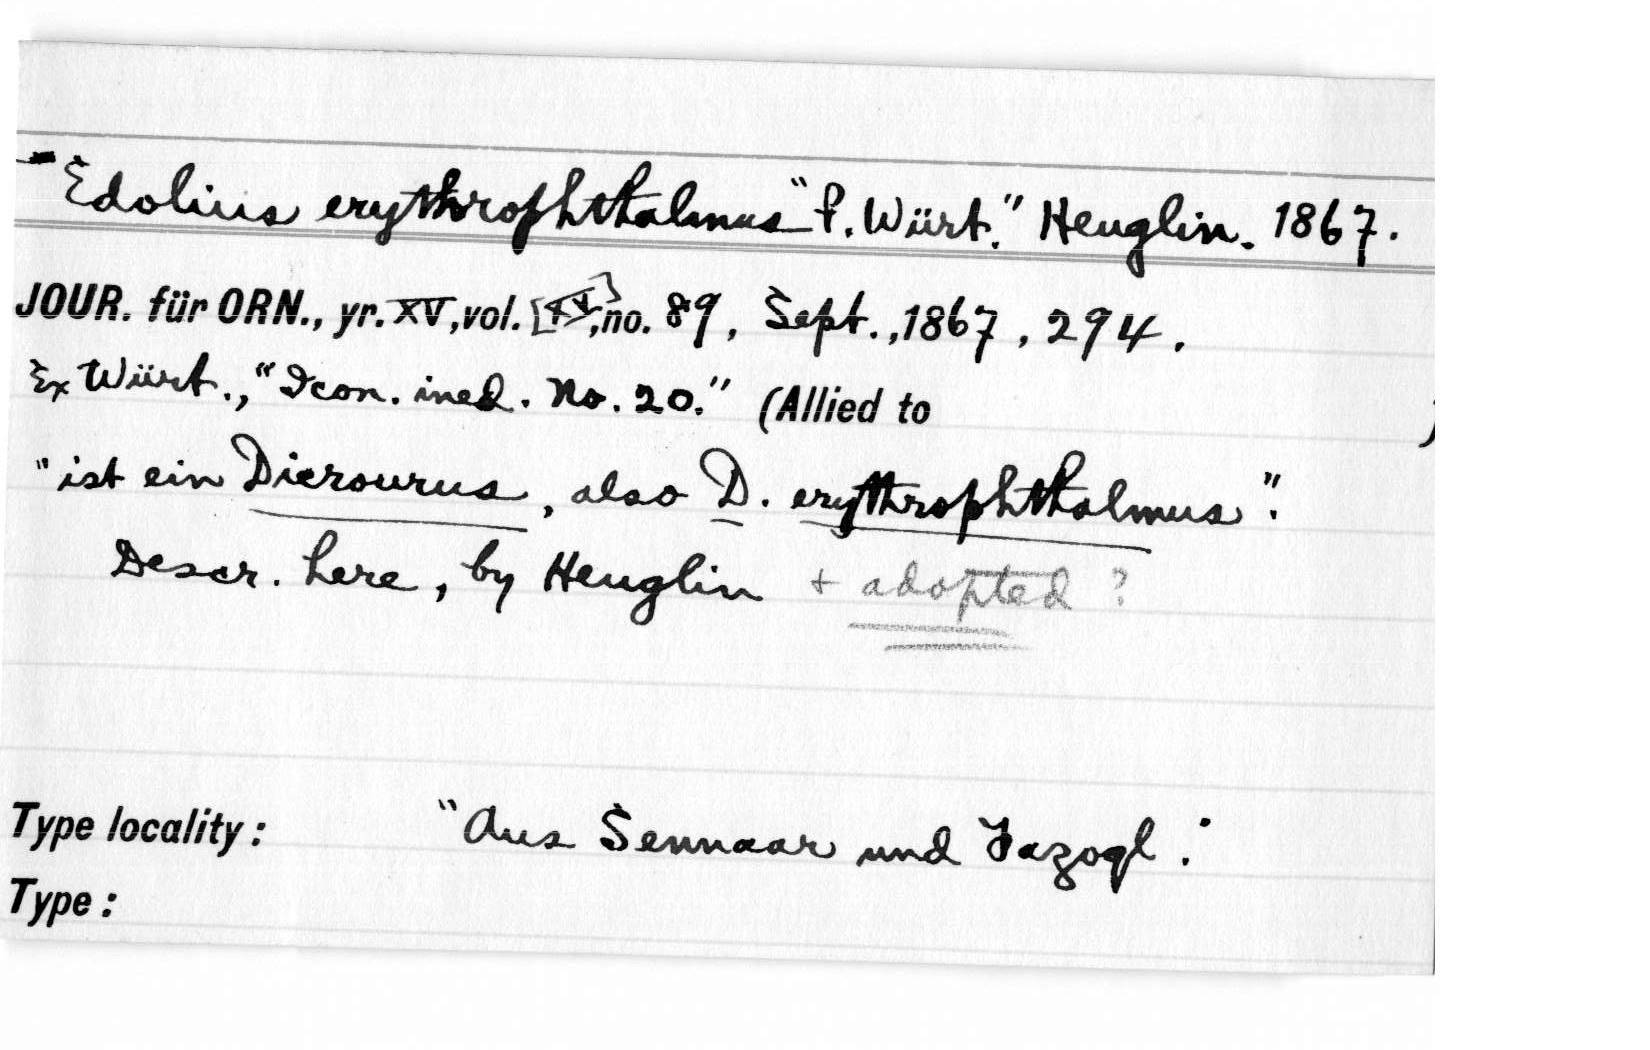 "Edolius erythrophthalmus "P. Würt." Heuglin. 1867.
JOUR. für ORN., yr. XV, vol. [XV], no. 89, Sept., 1867, 294.
Ex Würt., "Icon. ined. No. 20." (Allied to )
"ist ein Dicrourus, also D. erythrophthalmus".
Descr. here, by Heuglin + adopted ?
Type locality: "Aus Sennaar und Fazogl."
Type: